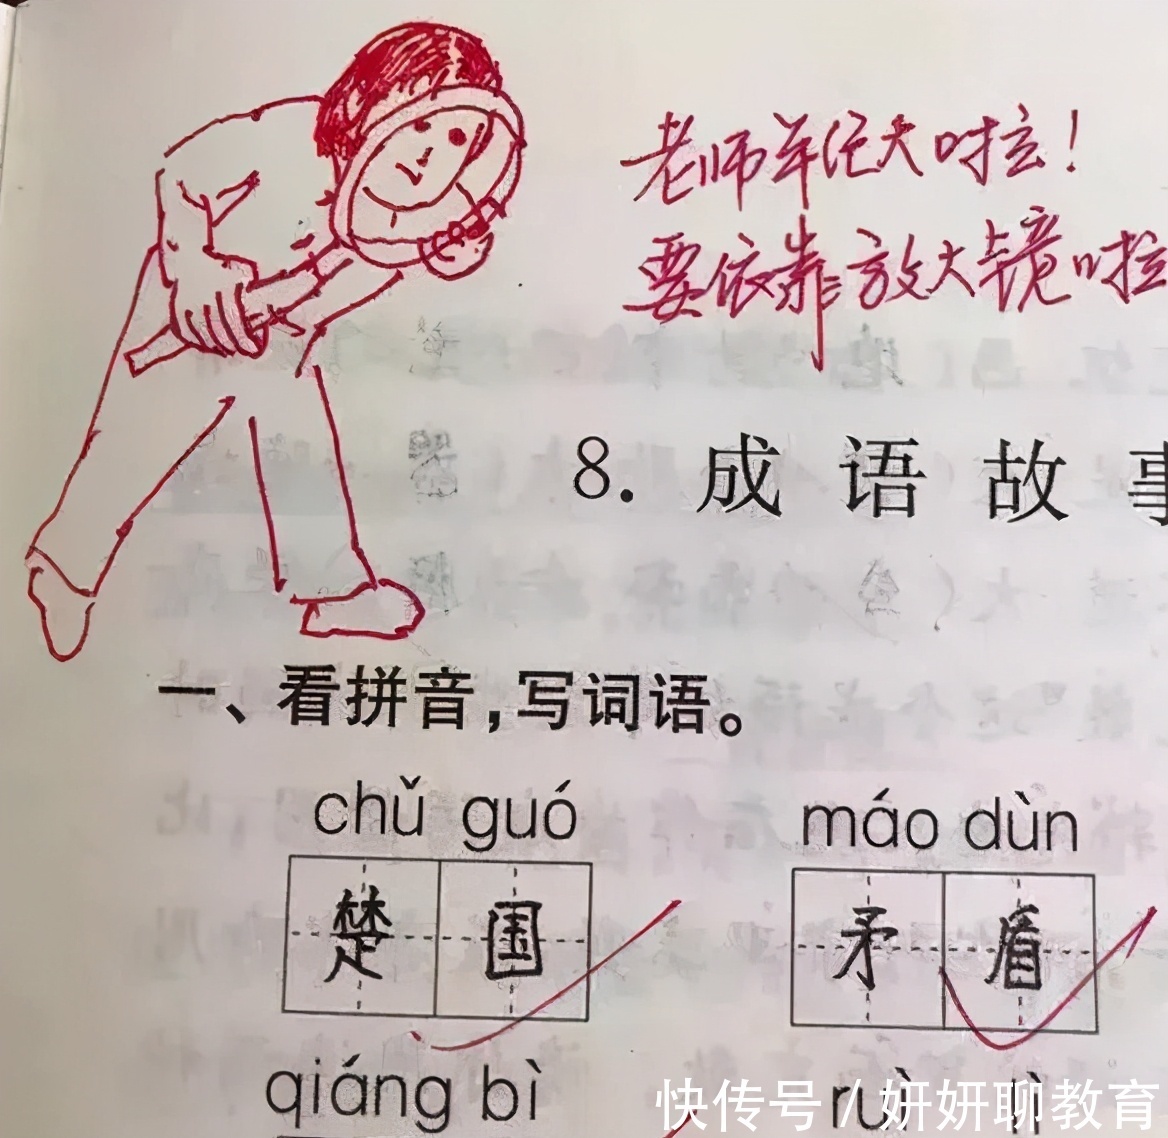 老师年纪大啦！
要依靠放大镜啦
8. 成语故事
一、看拼音，写词语。
chǔ guó máo dùn
楚国 矛盾
qiáng bì ruì lì
快传号 / 妍妍聊教育